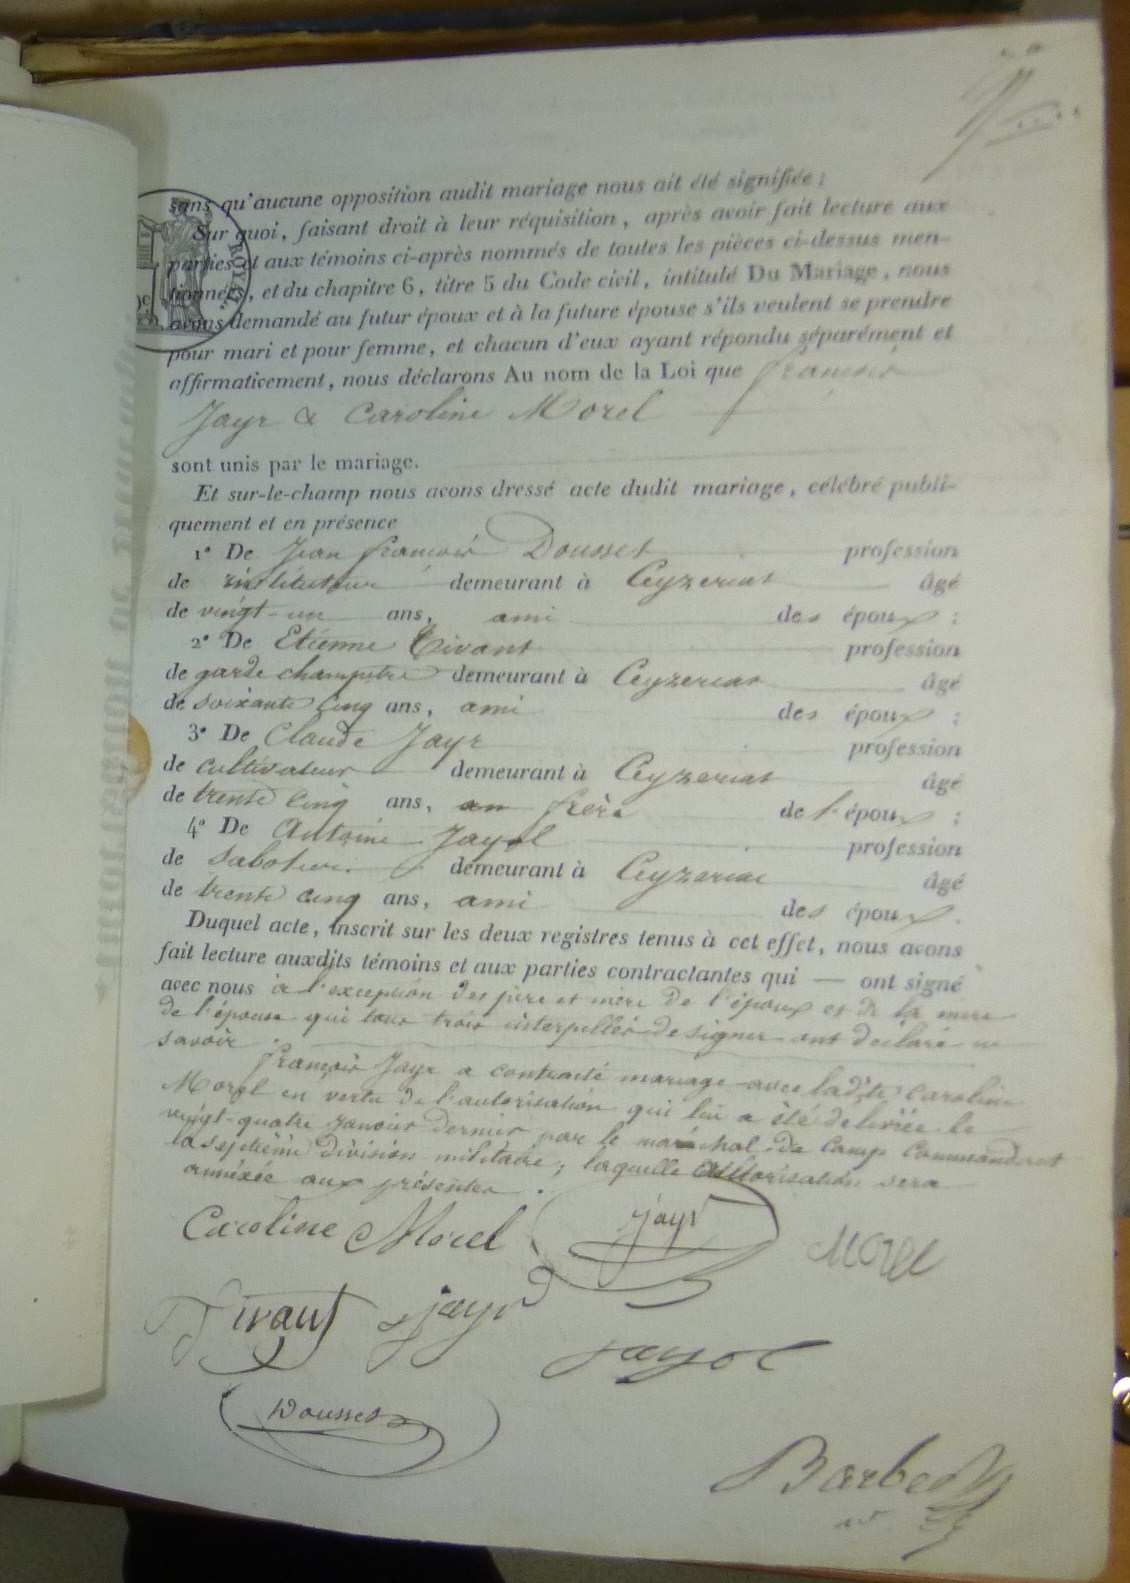 sans qu'aucune opposition audit mariage nous ait été signifiée;
Sur quoi, faisant droit à leur réquisition, après avoir fait lecture aux
parties et aux témoins ci-après nommés de toutes les pièces ci-dessus men-
tionnées, et du chapitre 6, titre 5 du Code civil, intitulé Du Mariage, nous
avons demandé au futur époux et à la future épouse s'ils veulent se prendre
pour mari et pour femme, et chacun d'eux ayant répondu séparément et
affirmativement, nous déclarons Au nom de la Loi que françois
Jayr & Caroline Morel
sont unis par le mariage.
Et sur-le-champ nous avons dressé acte dudit mariage, célébré publi-
quement et en présence
1° De Jean françois Dousset profession
de instituteur demeurant à Ceyzeriat âgé
de vingt-un ans, ami des époux;
2° De Etienne Tivant profession
de garde champêtre demeurant à Ceyzeriat âgé
de soixante cinq ans, ami des époux;
3° De Claude Jayr profession
de cultivateur demeurant à Ceyzeriat âgé
de trente cinq ans, frère de l'époux;
4° De Antoine Jayol profession
de sabotier demeurant à Ceyzeriat âgé
de trente cinq ans, ami des époux.
Duquel acte, inscrit sur les deux registres tenus à cet effet, nous avons
fait lecture auxdits témoins et aux parties contractantes qui — ont signé
avec nous à l'exception des père et mère de l'époux et de la mère
de l'épouse qui tous trois interpellés de signer ont déclaré ne
savoir.
françois Jayr a contracté mariage avec ladite Caroline
Morel en vertu de l'autorisation qui lui a été délivrée le
vingt-quatre janvier dernier par le maréchal de Camp Commandant
la septième division militaire, laquelle autorisation sera
annéxée aux présentes.
Caroline Morel Jayr Morel
Tivant Jayr
Jayol
Dousset
Barbe